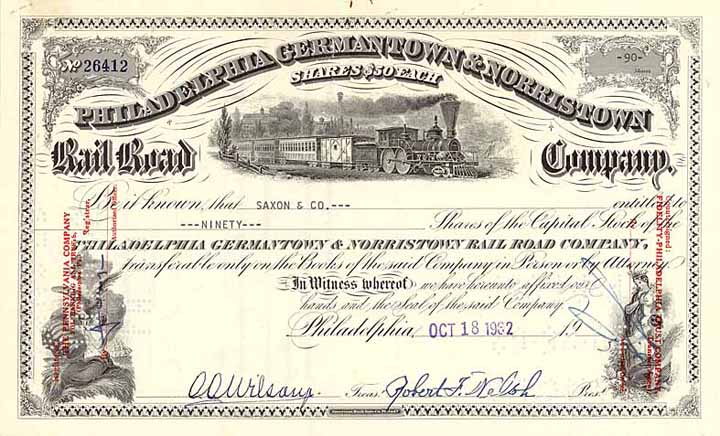 Nº 26412
-90-
Shares
PHILADELPHIA GERMANTOWN & NORRISTOWN
SHARES $50 EACH
Rail Road Company.
Be it known, that SAXON & CO.--- entitled to
---NINETY--- Shares of the Capital Stock of the
PHILADELPHIA GERMANTOWN & NORRISTOWN RAIL ROAD COMPANY,
transferable only on the Books of the said Company in Person or by Attorney
In Witness whereof we have hereunto affixed our
hands and the Seal of the said Company
Philadelphia, OCT 18 1962 19
Treas. Robert F. Pres.
THE PENNSYLVANIA COMPANY
Registrar,
Authorized Officer
Countersigned:
FIDELITY-PHILADELPHIA TRUST COMPANY